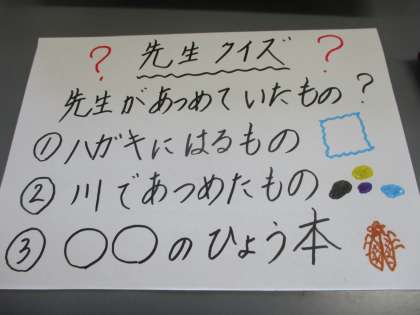 ? 先生クイズ ?
先生があつめていたもの?
①ハガキにはるもの
②川であつめたもの
③〇〇のひょう本